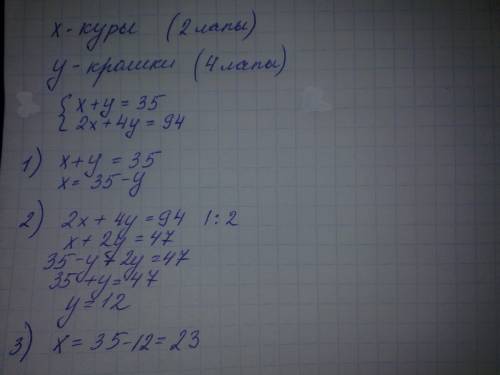 x - куры (2 лапы)
y - кролики (4 лапы)
{ x+y = 35
{ 2x+4y = 94
1) x+y = 35
x = 35-y
2) 2x + 4y = 94 | : 2
x + 2y = 47
35-y+2y = 47
35+y = 47
y = 12
3) x = 35-12 = 23